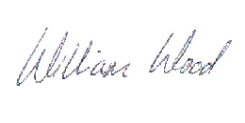 William Wood